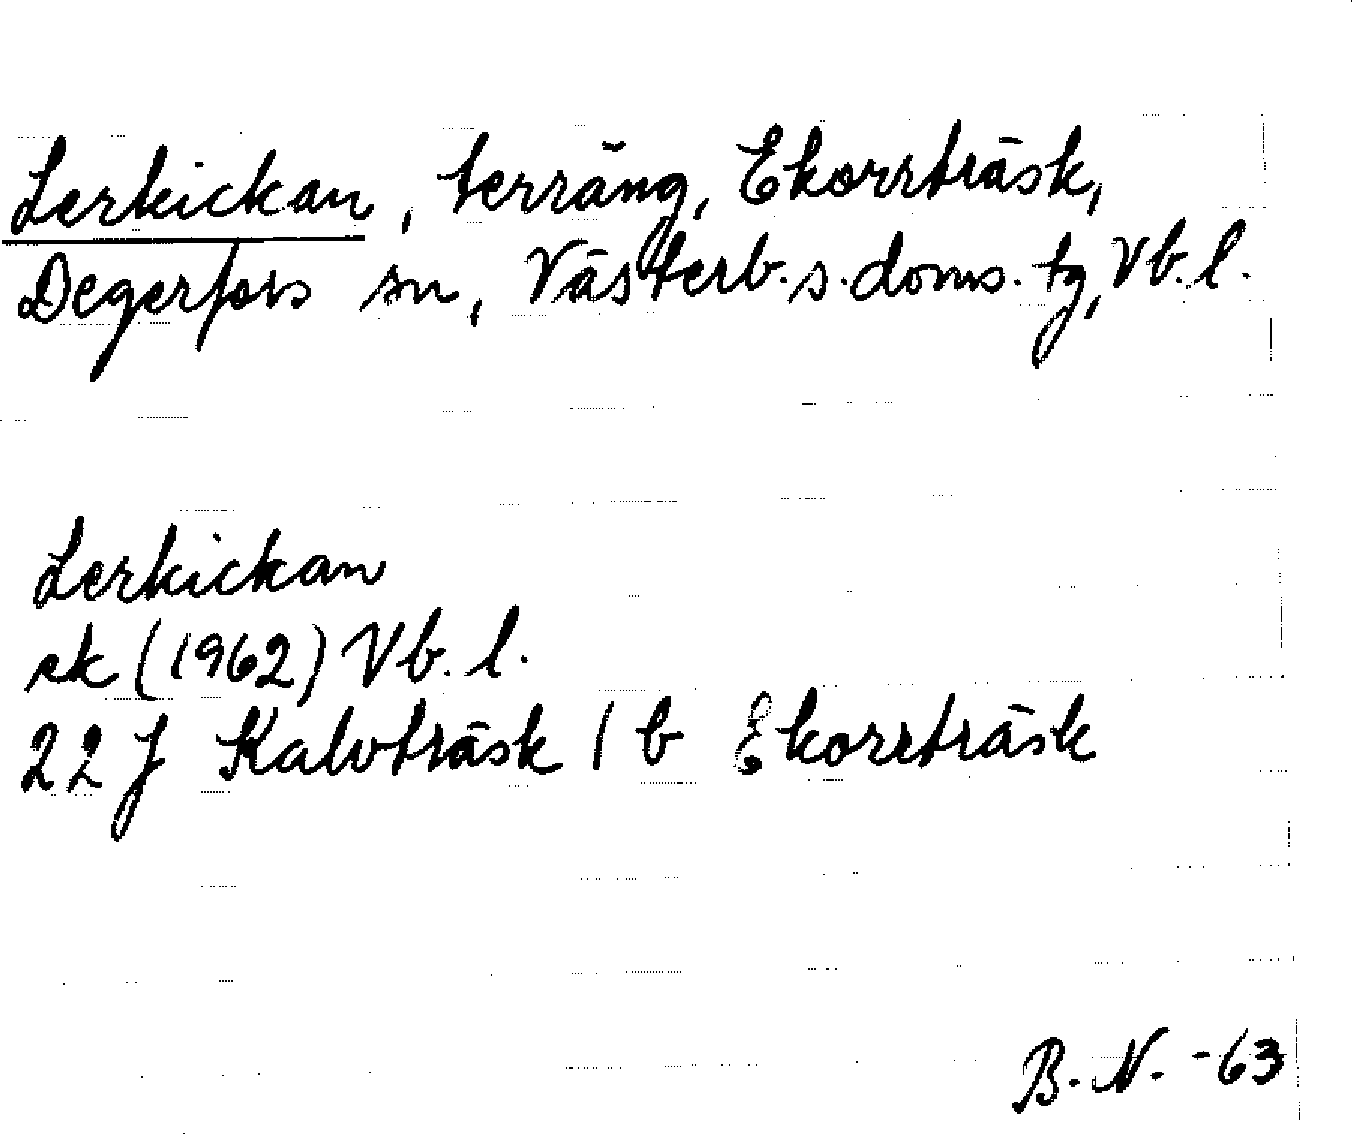 Lerkickan, terräng, Ekorrträsk,
Degerfors sn, Västerb. s. doms. tg, Vb. l.
Lerkickan
ek (1962) Vb. l.
22 J Kalvträsk 1 b Ekorrträsk
B. N. -63